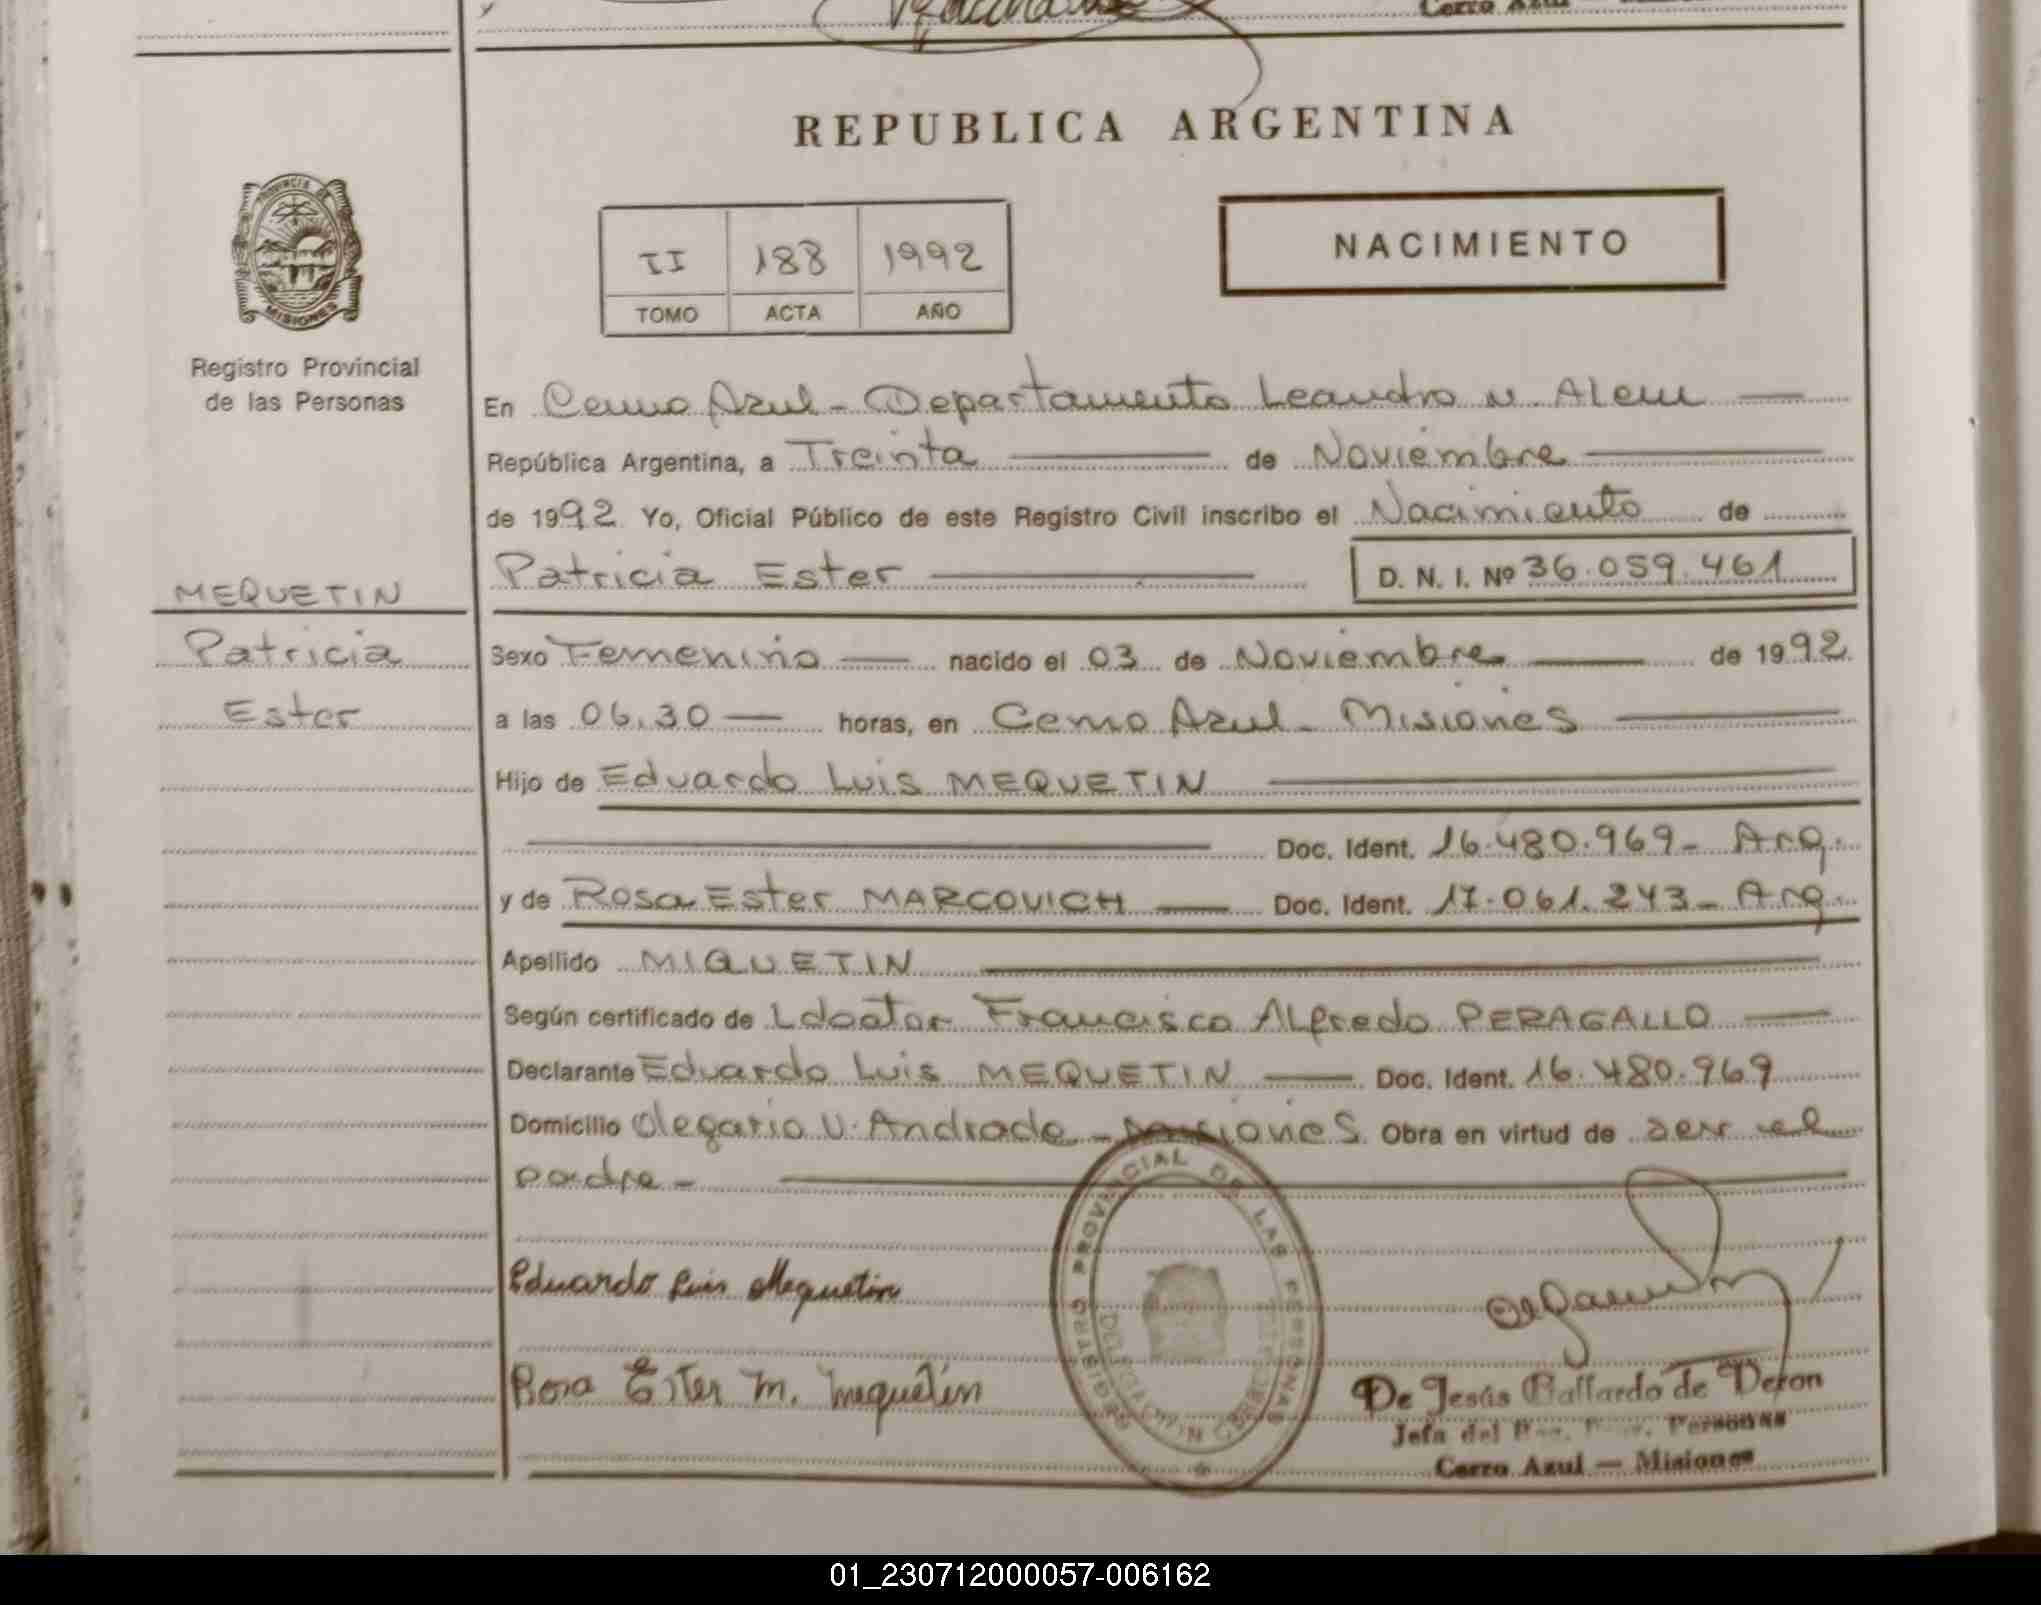 Cerro Azul
REPUBLICA ARGENTINA
PROVINCIA DE
MISIONES
Registro Provincial
de las Personas
II 188 1992
TOMO ACTA AÑO
NACIMIENTO
En Cerro Azul - Departamento Leandro N. Alem
República Argentina, a Treinta de Noviembre
de 1992 Yo, Oficial Público de este Registro Civil inscribo el Nacimiento de
Patricia Ester D. N. I. Nº 36.059.461
MEQUETIN
Patricia
Ester
Sexo Femenino nacido el 03 de Noviembre de 1992
a las 06.30 horas, en Cerro Azul - Misiones
Hijo de Eduardo Luis MEQUETIN
Doc. Ident. 16.480.969- Arg.
y de Rosa Ester MARCOVICH Doc. Ident. 17.061.243- Arg.
Apellido MIQUETIN
Según certificado de Ldoctor Francisco Alfredo PERAGALLO
Declarante Eduardo Luis MEQUETIN Doc. Ident. 16.480.969
Domicilio Olegario V. Andrade - Misiones Obra en virtud de ser el
padre -
Eduardo Luis Mequetin
Rosa Ester M. Mequetin
REGISTRO PROVINCIAL DE LAS PERSONAS
DELEGACION CERRO
De Jesús Gallardo de Deron
Jefa del Reg. Prov. Personas
Cerro Azul — Misiones
01_230712000057-006162